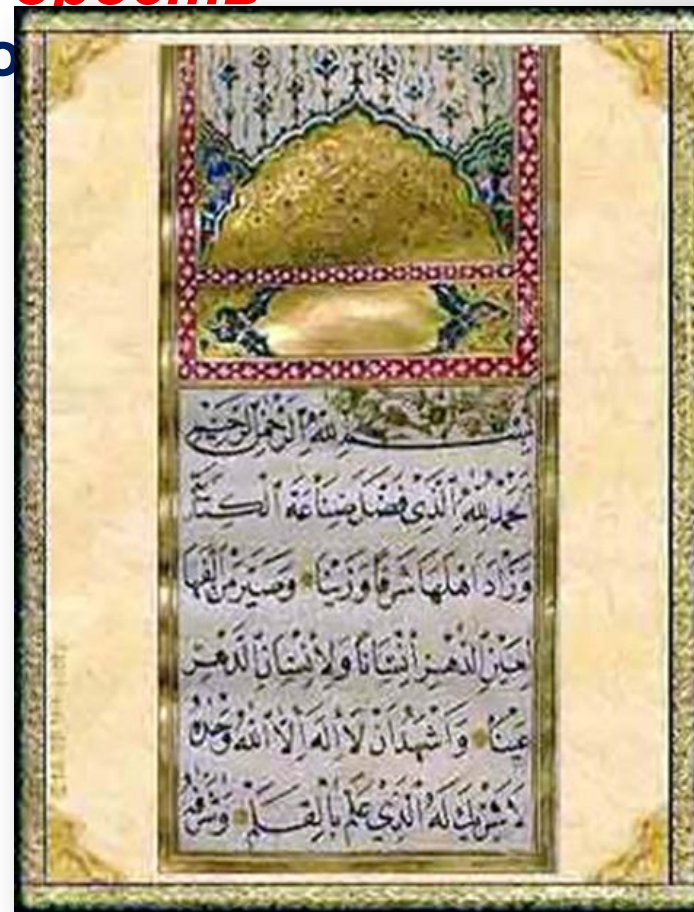 بسم الله الرحمن الرحيم
الحمد لله الذي فضل صناعة الكتابة
وزاد اهلها شرفا وزينا وصير من الفها
لعين الدهر انسانا ولانسان الدهر
عينا واشهد ان لا اله الا الله وحده
لا شريك له الذي علم بالقلم وشرف